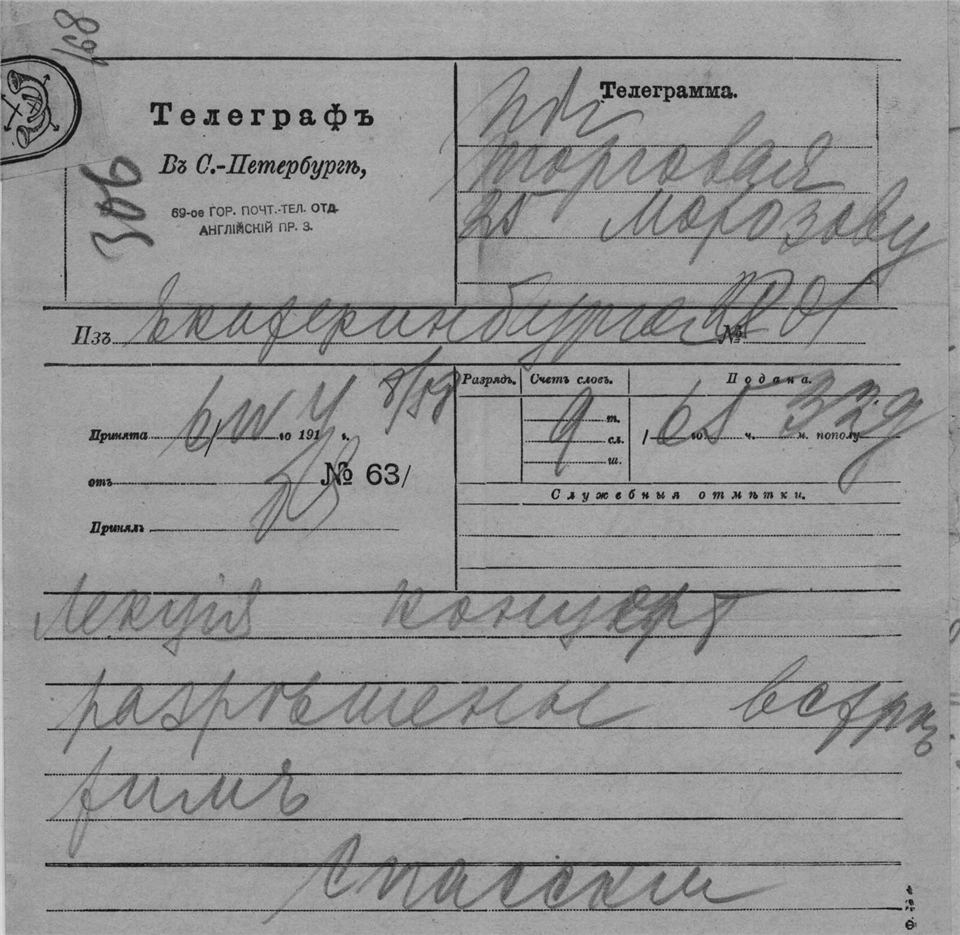 168
Телеграфъ
Въ С.-Петербургѣ,
69-ое ГОР. ПОЧТ.-ТЕЛ. ОТД.
АНГЛІЙСКІЙ ПР. 3.
306
Телеграмма.
Пбг
Торговая
25 Морозову
Изъ Екатеринбурга №
Принята 6/IV го 191 г.
отъ № 63/
Принялъ
Разрядъ. Счетъ словъ. Подана.
9 т. сл. ш.
го ч. м. пополу
Служебныя отмѣтки.
Лекція концерт
разрѣшены встрѣ
тимъ
Спасский